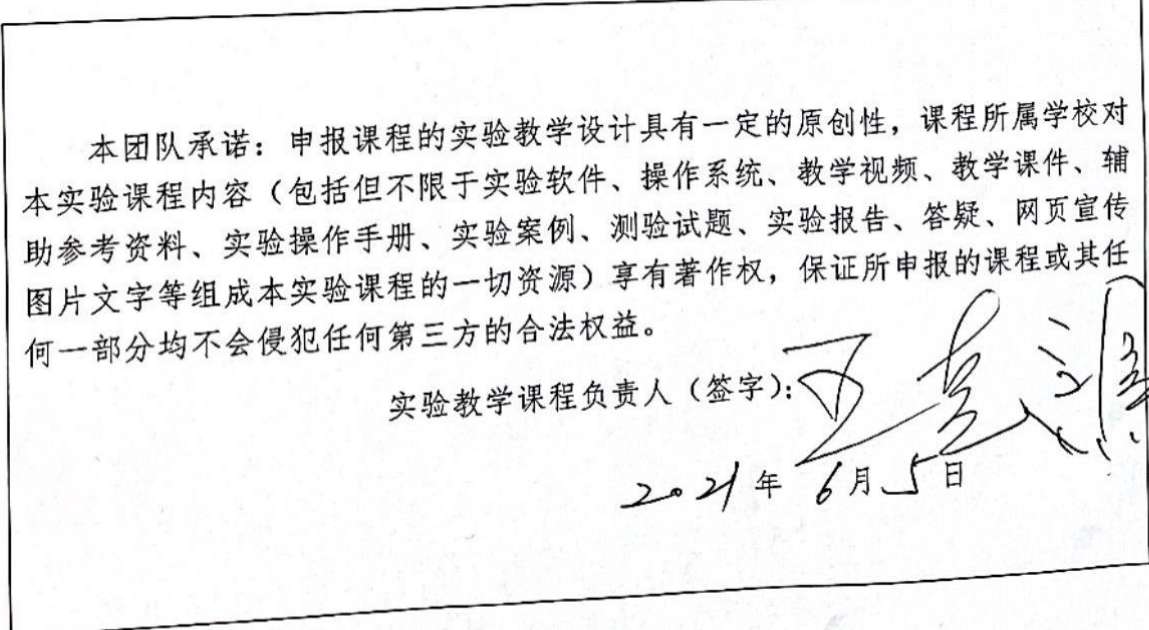 本团队承诺：申报课程的实验教学设计具有一定的原创性，课程所属学校对
本实验课程内容（包括但不限于实验软件、操作系统、教学视频、教学课件、辅
助参考资料、实验操作手册、实验案例、测验试题、实验报告、答疑、网页宣传
图片文字等组成本实验课程的一切资源）享有著作权，保证所申报的课程或其任
何一部分均不会侵犯任何第三方的合法权益。
实验教学课程负责人（签字）：王
2021年 6月5日